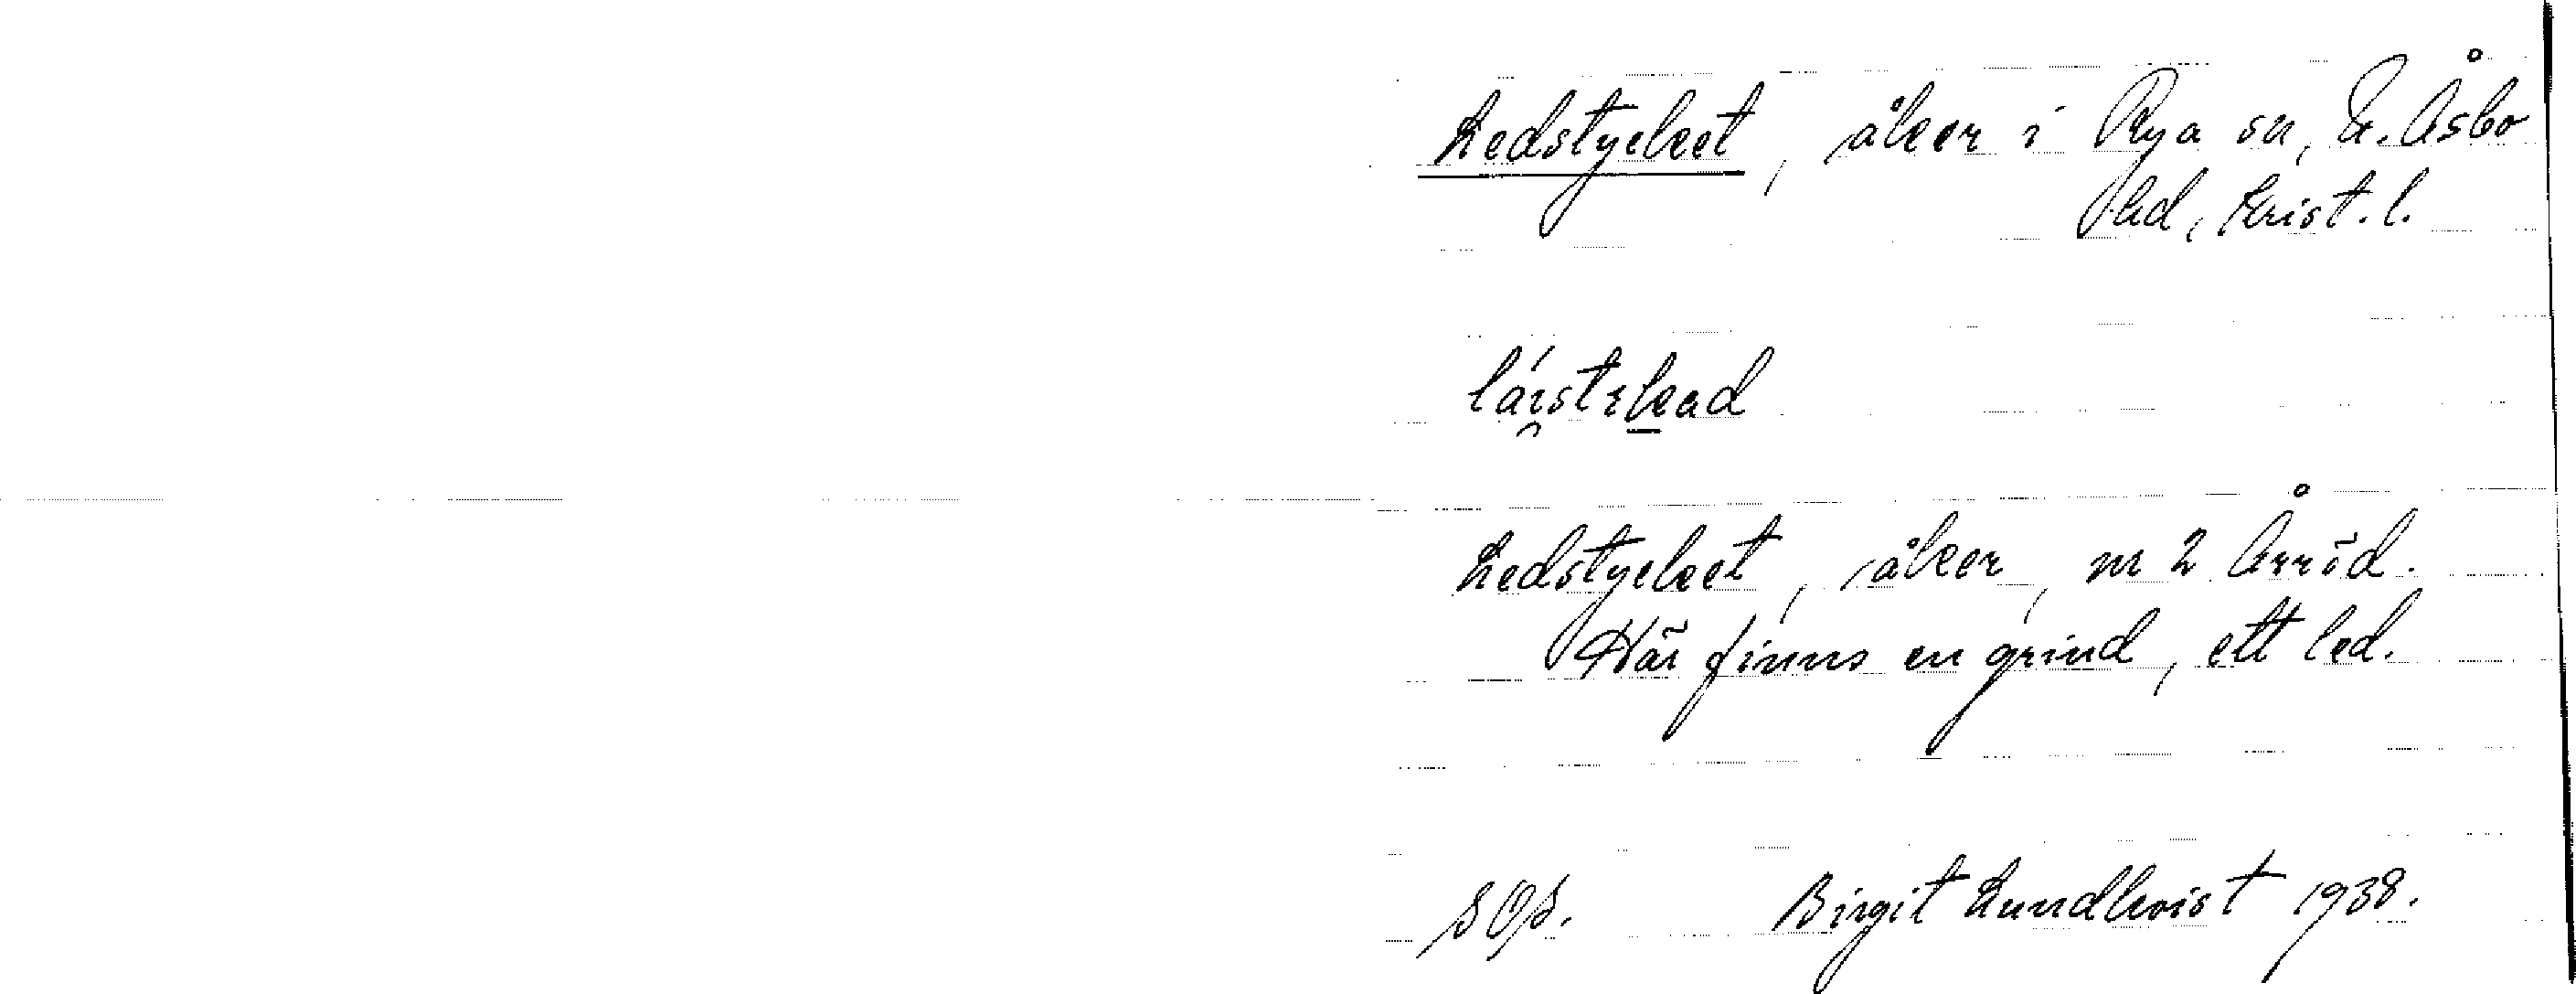 Ledstycket, åker i Rya sn, N. Åsbo
hd, Krist. l.
Ledstycket, åker, nr 2 Årröd.
Här finns en grind, ett led.
SOS. Birgit Lundkvist 1938.